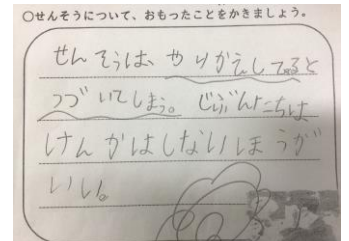 ○せんそうについて、おもったことをかきましょう。
せんそうは、やりかえしてると
つづいてしまう。じぶんたちは
けんかはしないほうが
いい。